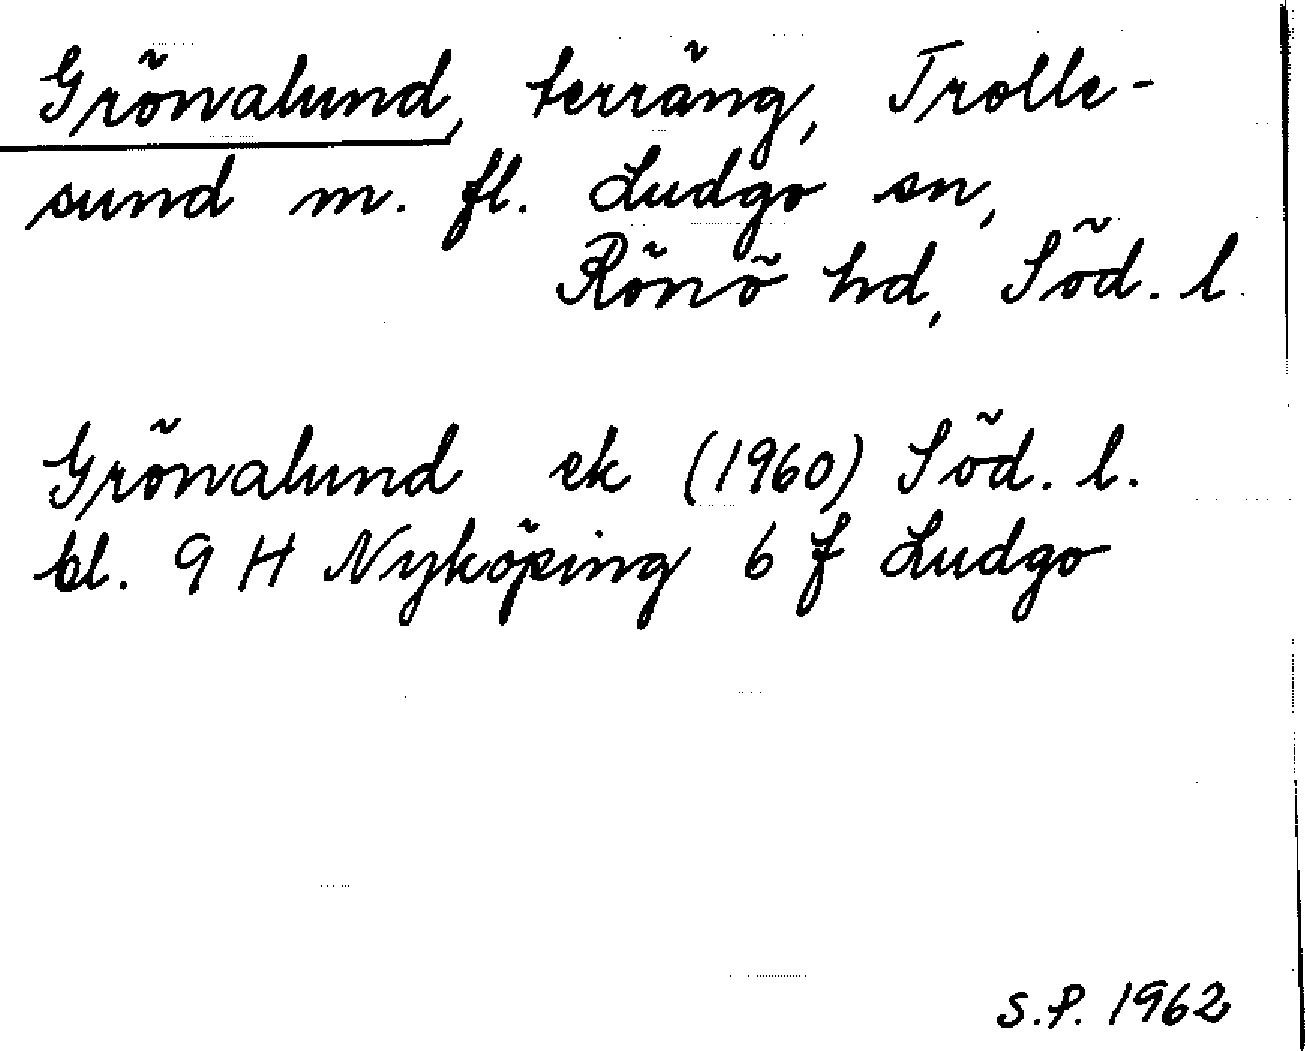 Grönalund, terräng, Trolle-
sund m. fl. Ludgo sn,
Rönö hd, Söd. l.
Grönalund ek (1960) Söd. l.
bl. 9 H Nyköping 6 f Ludgo
S.P. 1962